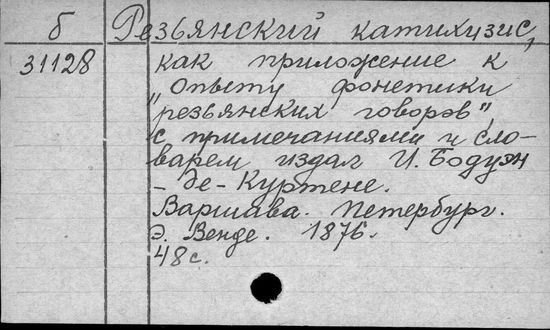 б Резьянский катихизис,
31128 как приложение к
„Опыту фонетики
резьянских говоров",
с примечаниями и сло-
варем издал И. Бодуэн
- де-Куртене.
Варшава. Петербург.
Э. Венде. 1876.
48 с.